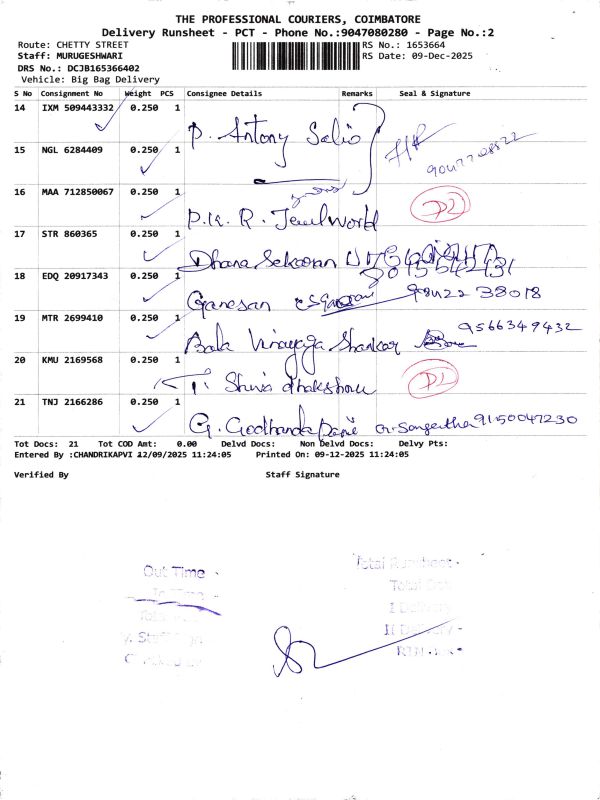 THE PROFESSIONAL COURIERS, COIMBATORE
Delivery Runsheet - PCT - Phone No.:9047080280 - Page No.:2
Route: CHETTY STREET
RS No.: 1653664
Staff: MURUGESHWARI
RS Date: 09-Dec-2025
DRS No.: DCJB165366402
Vehicle: Big Bag Delivery
S No Consignment No Weight PCS Consignee Details Remarks Seal & Signature
14 IXM 509443332 0.250 1 P. Antony Salio
15 NGL 6284409 0.250 1
16 MAA 712850067 0.250 1 P.K.R. Jewel World D2
17 STR 860365 0.250 1 Dhana Sekaran
18 EDQ 20917343 0.250 1 Ganesan 98422 38018
19 MTR 2699410 0.250 1 Bala Vinayaga Shankar 9566349432
20 KMU 2169568 0.250 1 T. Shiva dhakshan D2
21 TNJ 2166286 0.250 1 G. Godhandapani G. Sangeetha 9150047230
Tot Docs: 21 Tot COD Amt: 0.00 Delvd Docs: Non Delvd Docs: Delvy Pts:
Entered By :CHANDRIKAPVI 12/09/2025 11:24:05 Printed On: 09-12-2025 11:24:05
Verified By Staff Signature
Out Time - Total Runsheet -
In Time - Total Doc
I Delivery
II Delivery -